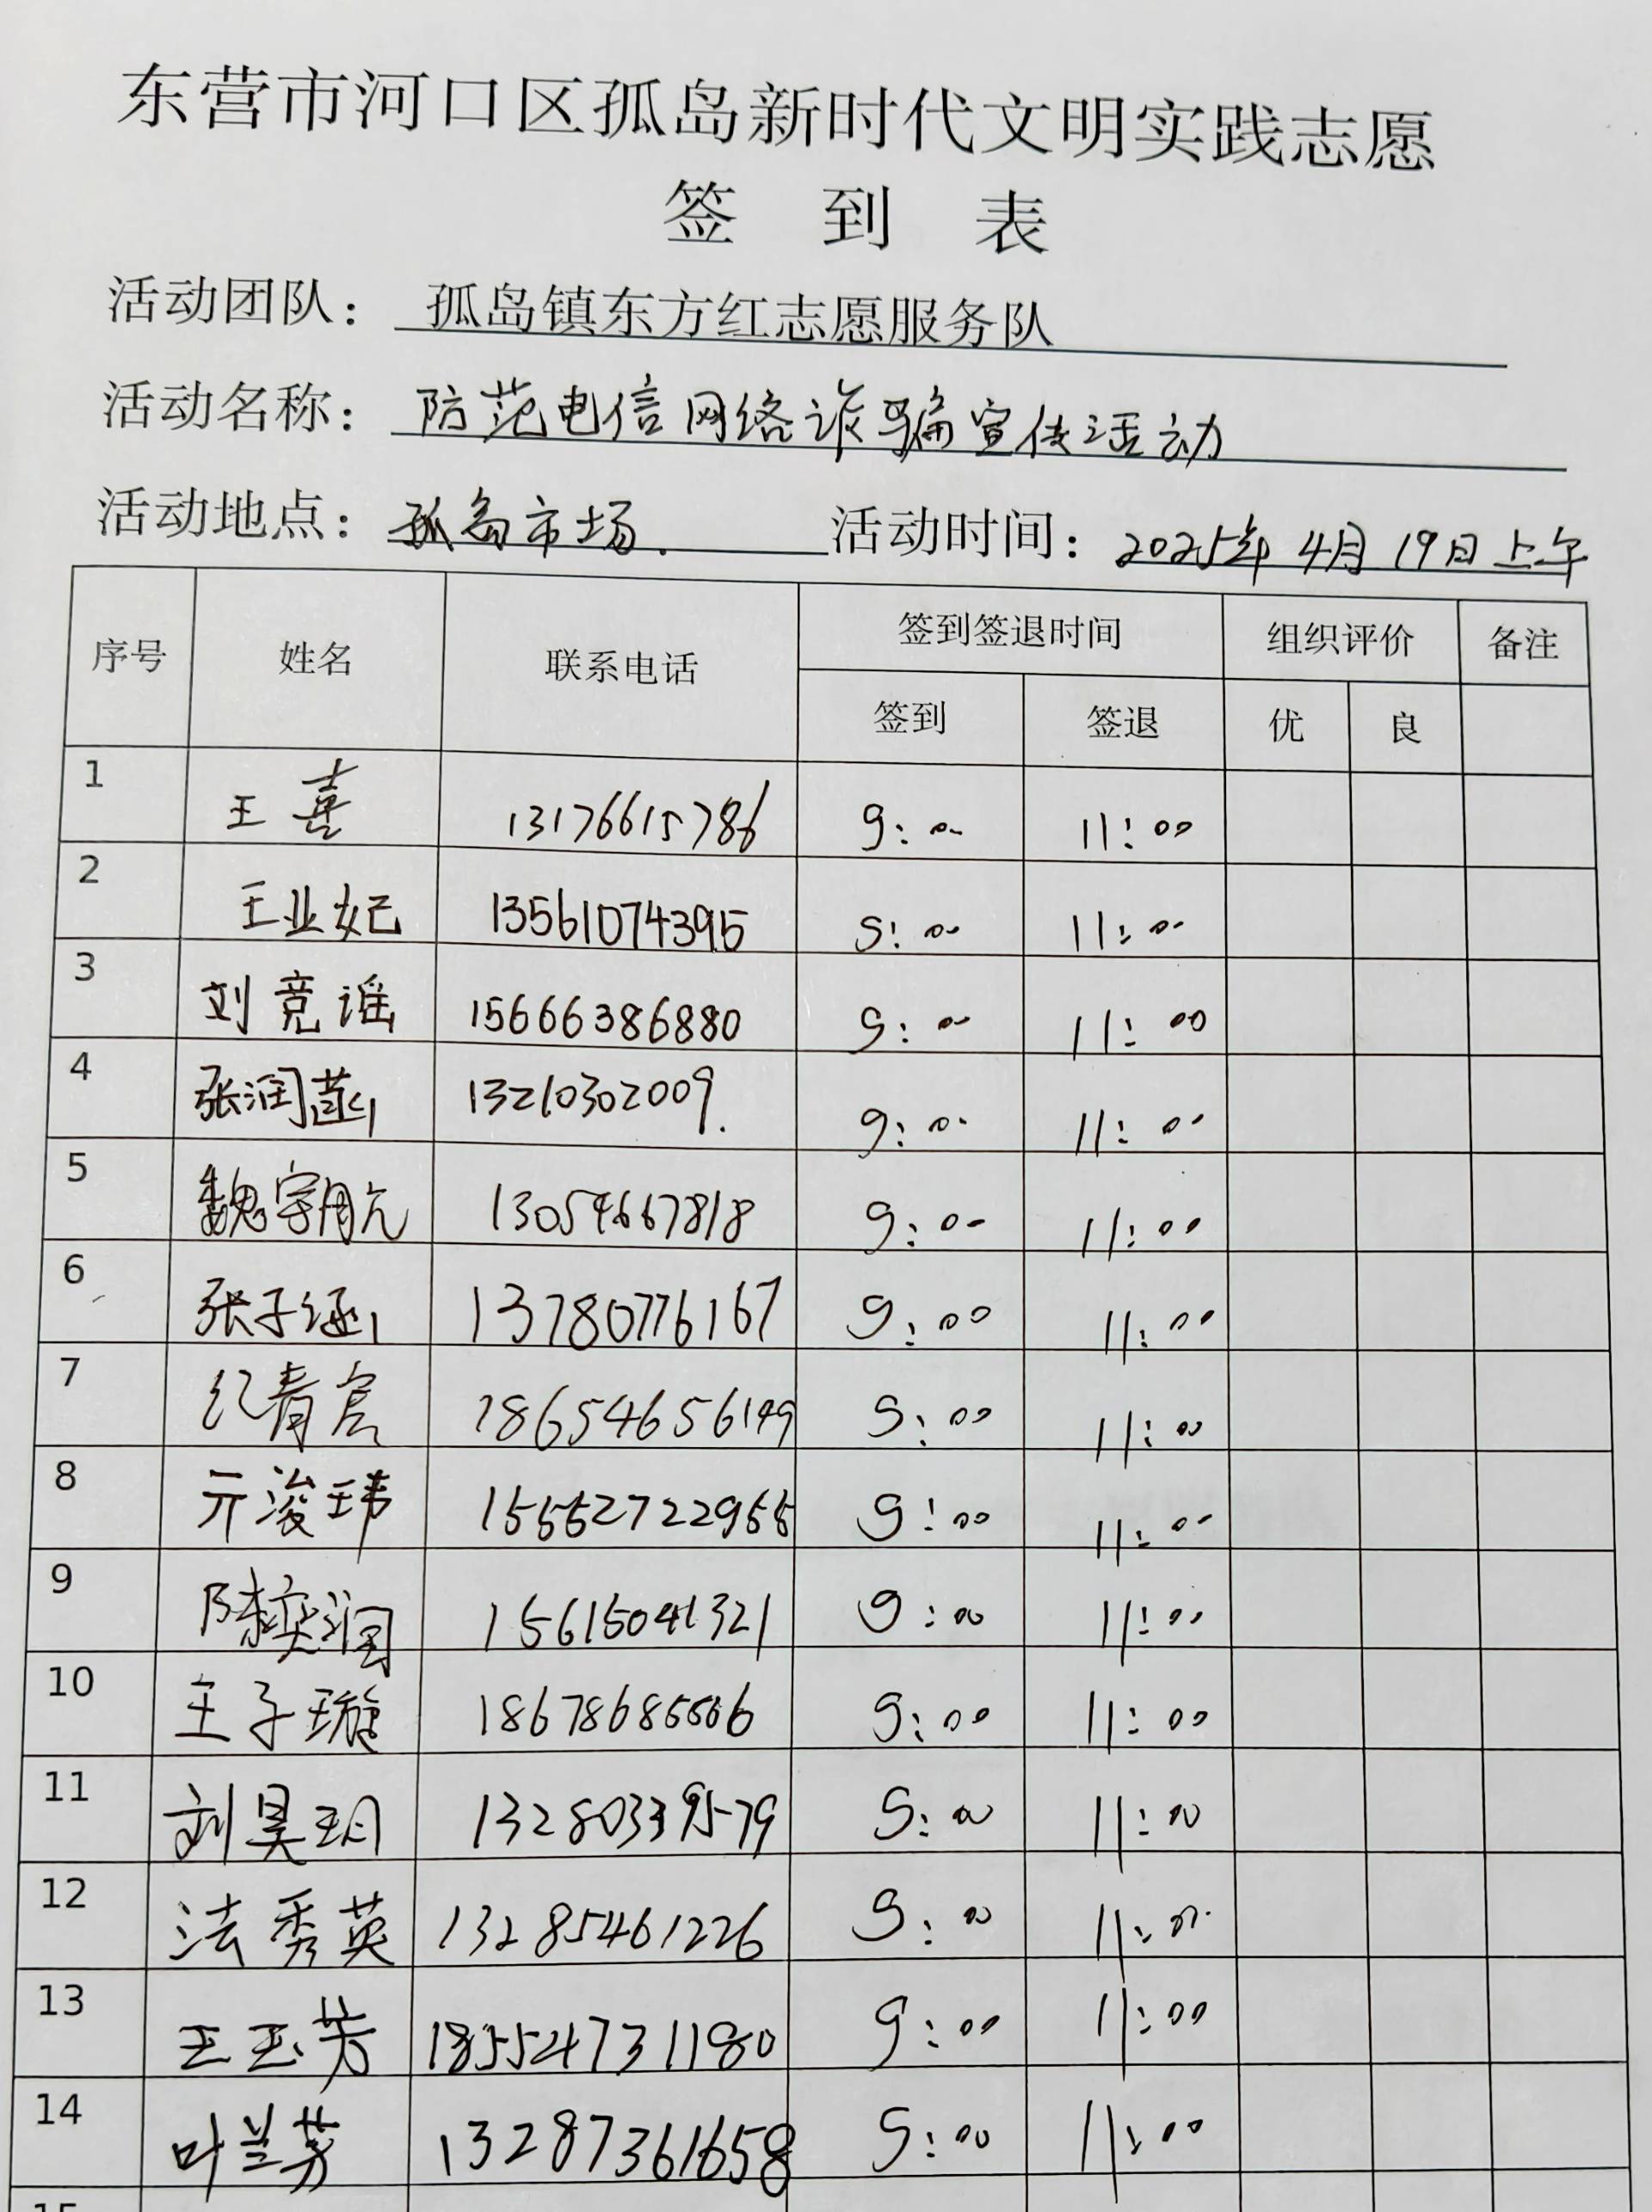 东营市河口区孤岛新时代文明实践志愿
签 到 表
活动团队： 孤岛镇东方红志愿服务队
活动名称： 防范电信网络诈骗宣传活动
活动地点： 孤岛市场. 活动时间： 2025年4月19日上午
序号 姓名 联系电话 签到签退时间 组织评价 备注
签到 签退 优 良
1 王喜 13176615786 9:00 11:00
2 王业妃 13561074395 9:00 11:00
3 刘竞谣 15666386880 9:00 11:00
4 张润菡 13210302009. 9:00 11:00
5 魏宇朋元 13054667818 9:00 11:00
6 张子涵 13780776167 9:00 11:00
7 纪青宸 18654656149 9:00 11:00
8 亓浚玮 15552722955 9:00 11:00
9 陈奕润 15615041321 9:00 11:00
10 王子璇 9:00 11:00
11 刘昊玥 13280339579 9:00 11:00
12 法秀英 13285461226 9:00 11:00
13 王玉芳 9:00 11:00
14 叶兰芳 13287361658 9:00 11:00